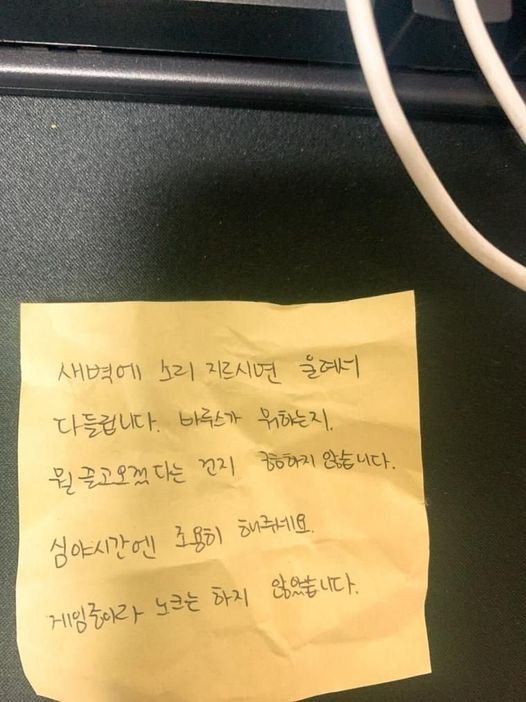 새벽에 소리 지르시면 울려서
다들립니다. 바루스가 뭐하는지.
뭘 끌고오겠다는 건지 궁금하지 않습니다.
심야시간엔 조용히 해주세요.
게임중이라 노크는 하지 않았습니다.